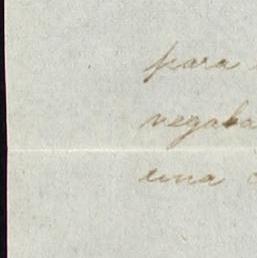 para
negaba
una